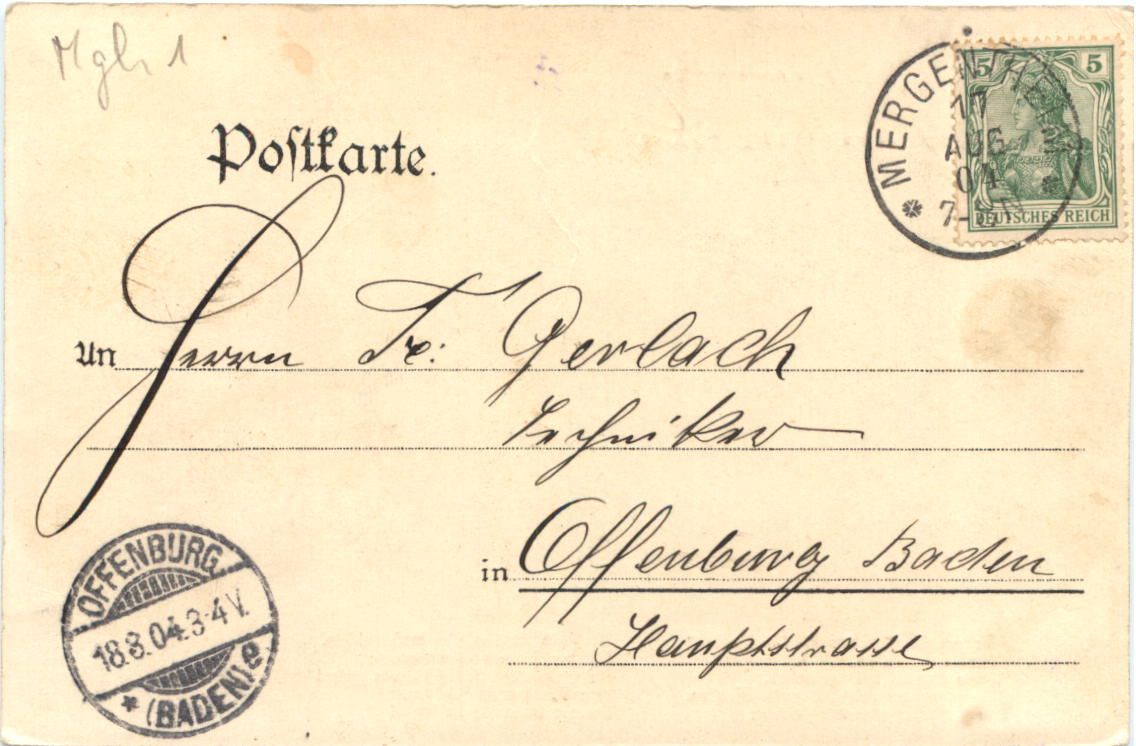 Mgh 1
Postkarte.
MERGENTHEIM
17
AUG
04
7-8N
5 5
DEUTSCHES REICH
An Herrn Fr: Gerlach
Techniker
in Offenburg Baden
Hauptstrasse
OFFENBURG.
18.8.04.3-4V.
* (BADEN) e